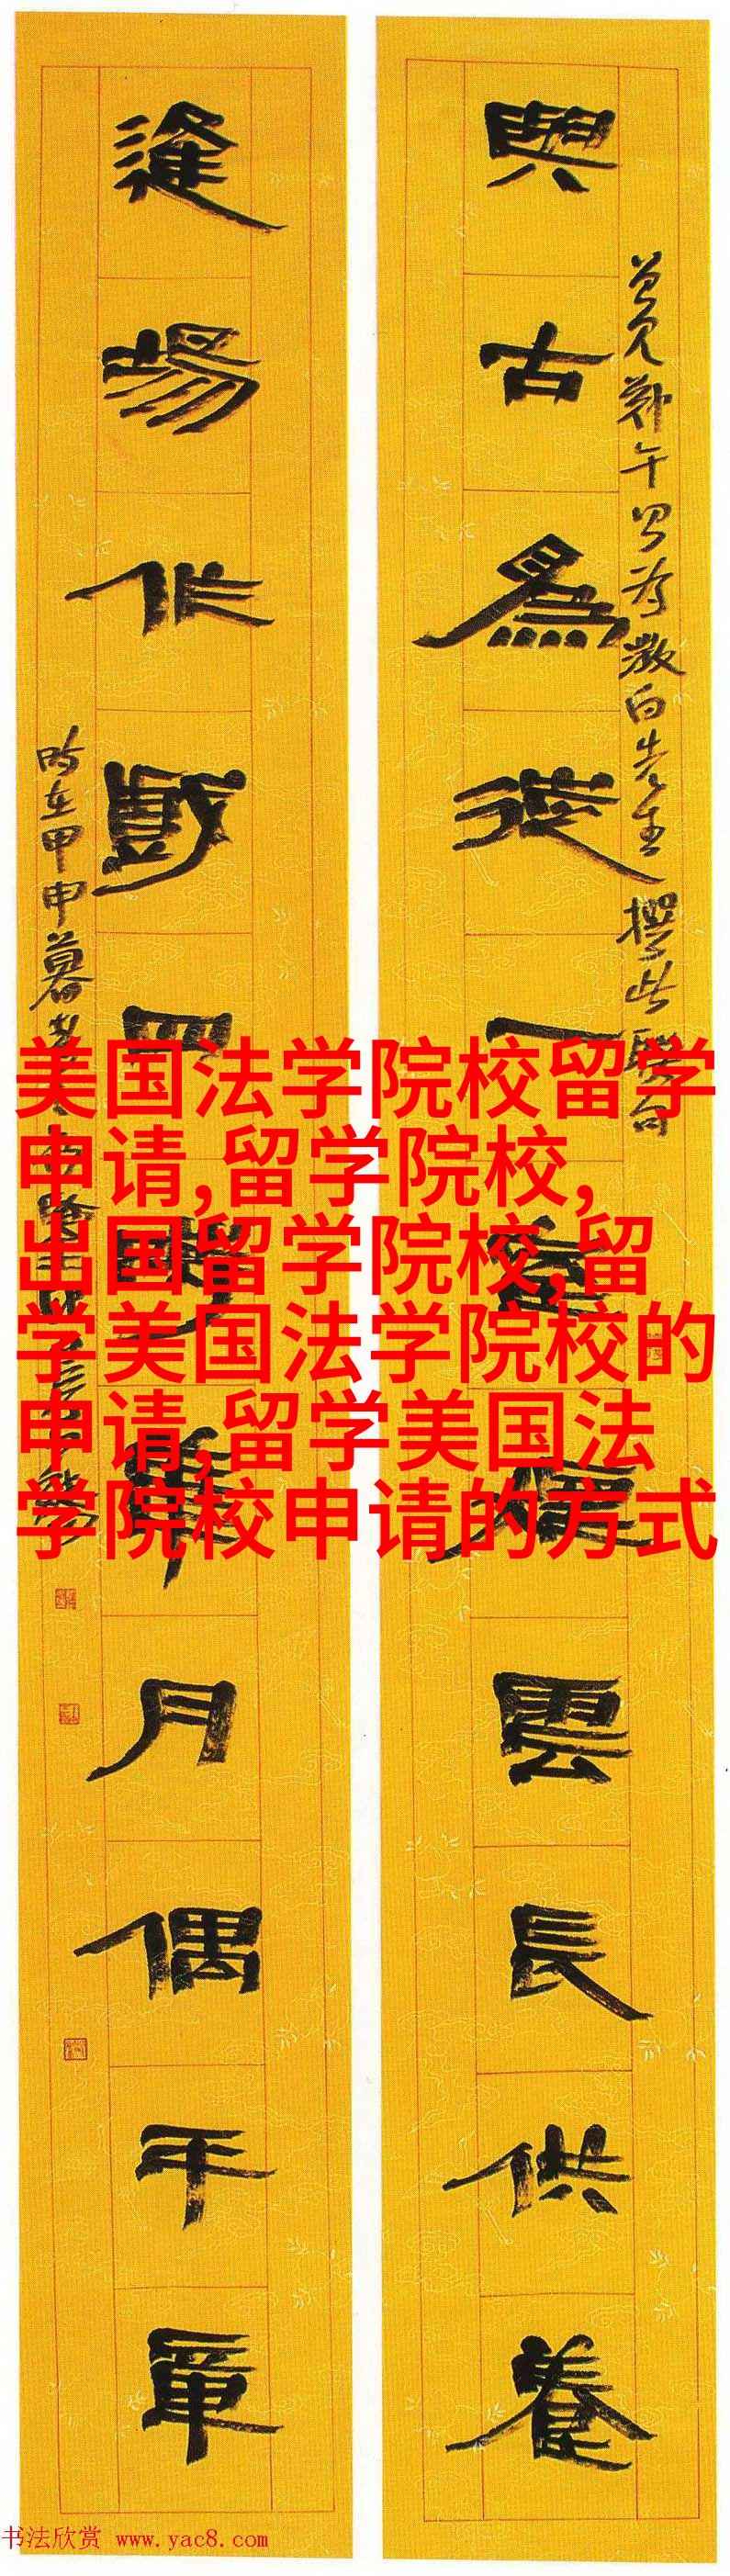 與古爲徒一室煙雲長供養
逢場作戲四時月偶平章
時在甲申暮春
美国法学院校留学
申请,留学院校,
出国留学院校,留
学美国法学院校的
申请,留学美国法
学院校申请的方式
书法欣赏 www.yac8.com